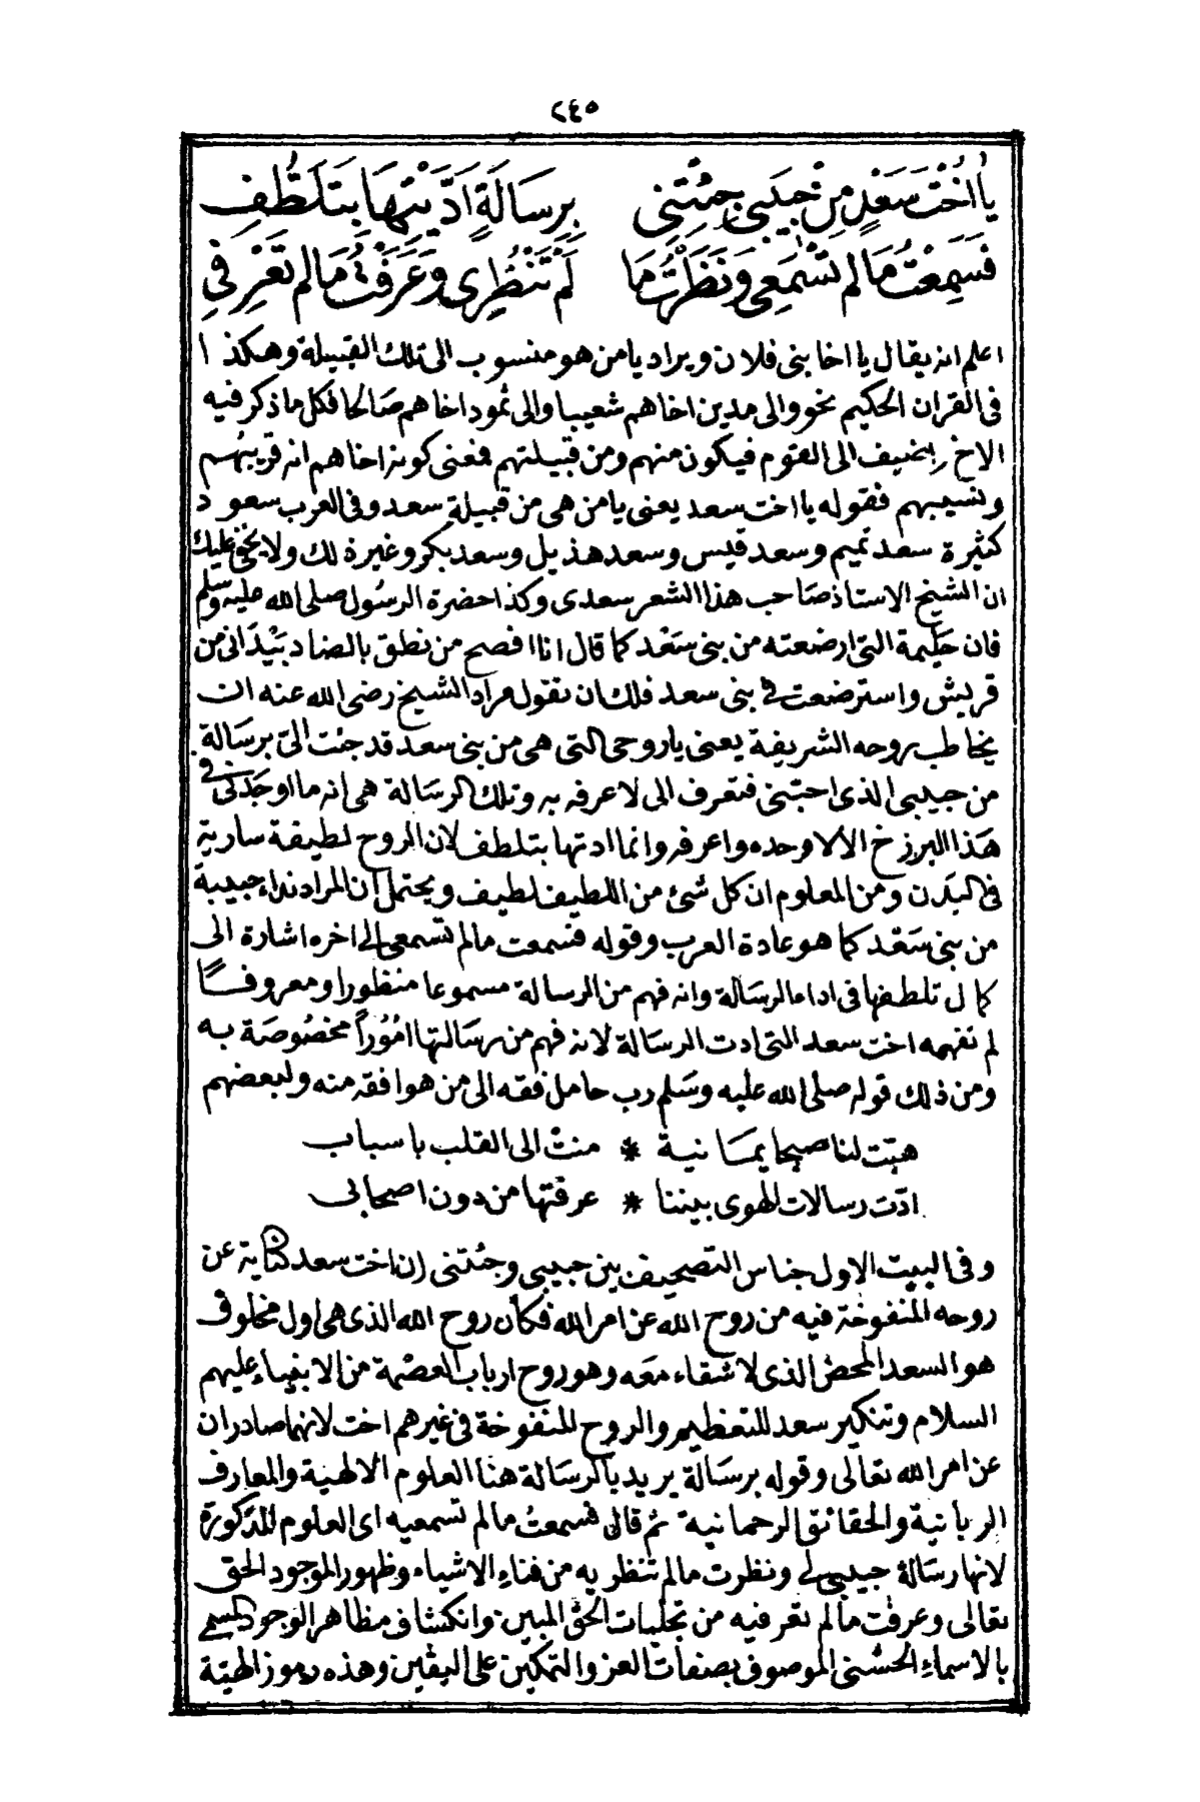 ٢٤٥
يَا اُخْتَ سَعَدٍ مِنْ حَبِيَبى جِئْتِنى بِرِسَالَةٍ اَدَّيْتِهَا بِتَلَطُّفِ
فَسَمِعْتُ مَا لم تَسْمَعِى وَنَظَرْتُ مَا لَمْ تَنْظُرِى وَعَرَفْتُ مَا لم تَعْرِفِى
اعلم انه يقال يا اخا بنى فلان ويراد يا من هو منسوب الى تلك القبيلة وهكذا
فى القران الحكيم نحو والى مدين اخاهم شعيبا والى ثمود اخاهم صَالحا فكل ما ذكر فيه
الاخ يضيف الى القوم فيكون منهم ومن قبيلتهم فمعنى كونه اخاهم انه قريبهم
ونسيبهم فقوله يا اخت سعد يعنى يا من هى من قبيلة سعد وفى العرب سعود
كثيرة سعد تميم وسعد قيس وسعد هذيل وسعد بكر وغير ذلك ولا يخفى عليك
ان الشيخ الاستاذ صَاحب هذا الشعر سعدى وكذا حضرة الرسُول صلى الله عليه وسلم
فان حَليمة التى ارضعته من بنى سَعْد كما قال انا افصح من نطق بالضاد بَيْدَ انى من
قريش واسترضعت فى بنى سعد فلك ان تقول مراد الشيخ رضى الله عنه ان
يخاطب روحه الشريفة يعنى يا روحى التى هى من بنى سعد قد جئت الىّ برسَالة
من حبيبى الذى احبّنى فتعرف الى لا عرفه به وتلك الرسَالة هى انه ما اوجَدنى فى
هَذا البرزخ الا لا وحده واعرفه وانما ادتها بتلطف لان الروح لطيفة سارية
فى البَدن ومن المعلوم ان كل شئ من اللطيف لطيف ويحتمل ان المراد نداء حبيبة
من بنى سَعْد كما هو عادة العرب وقوله فسمعت ما لم تسمعى الى اخره اشارة الى
كمال تلطفها فى اداء الرسَالة وانه فهم من الرسالة مسموعا منظورا ومعروفًا
لم تفهمه اخت سعد التى ادت الرسَالة لانه فهم من رسَالتها امُوُراً مخصُوصَة به
ومن ذلك قوله صلى الله عليه وسَلم رب حامل فقه الى من هو افقه منه ولبعضهم
هبّت لنا صبحا يمَا نية * منتْ الى القلب باسباب
ادّت رسالات الهوى بيننا * عرفتها من دون اصحابى
وفى البيت الاول جناس التصحيف بين حبيبى وجئتنى (ن) اخت سعد كناية عن
روحه المنفوخة فيه من روح الله عن امر الله فكأن روح الله الذى هى اول مخلوق
هو السعد المحض الذى لا شقاء معَه وهو روح ارباب العصْمة من الانبياء عليهم
السلام وتنكير سعد للتعظيم والروح المنفوخة فى غيرهم اخت لانهما صادران
عن امر الله تعالى وقوله برسَالة يريد بالرسَالة هنا العلوم الالهية والمعارف
الربانية والحقائق الرحمانية ثم قال فسمعتُ ما لم تسمعيه اى العلوم المذكورة
لانها رسَالة حبيبى لى ونظرت ما لم تنظريه من فناء الاشياء وظهور الموجود الحق
تعالى وعرفت ما لم تعرفيه من تجليات الحق المبين وانكشاف مظاهر الوجود المسمى
بالاسماء الحسْنى الموصوف بصفات العز والتمكين على اليقين وهذه رموز الهيّة